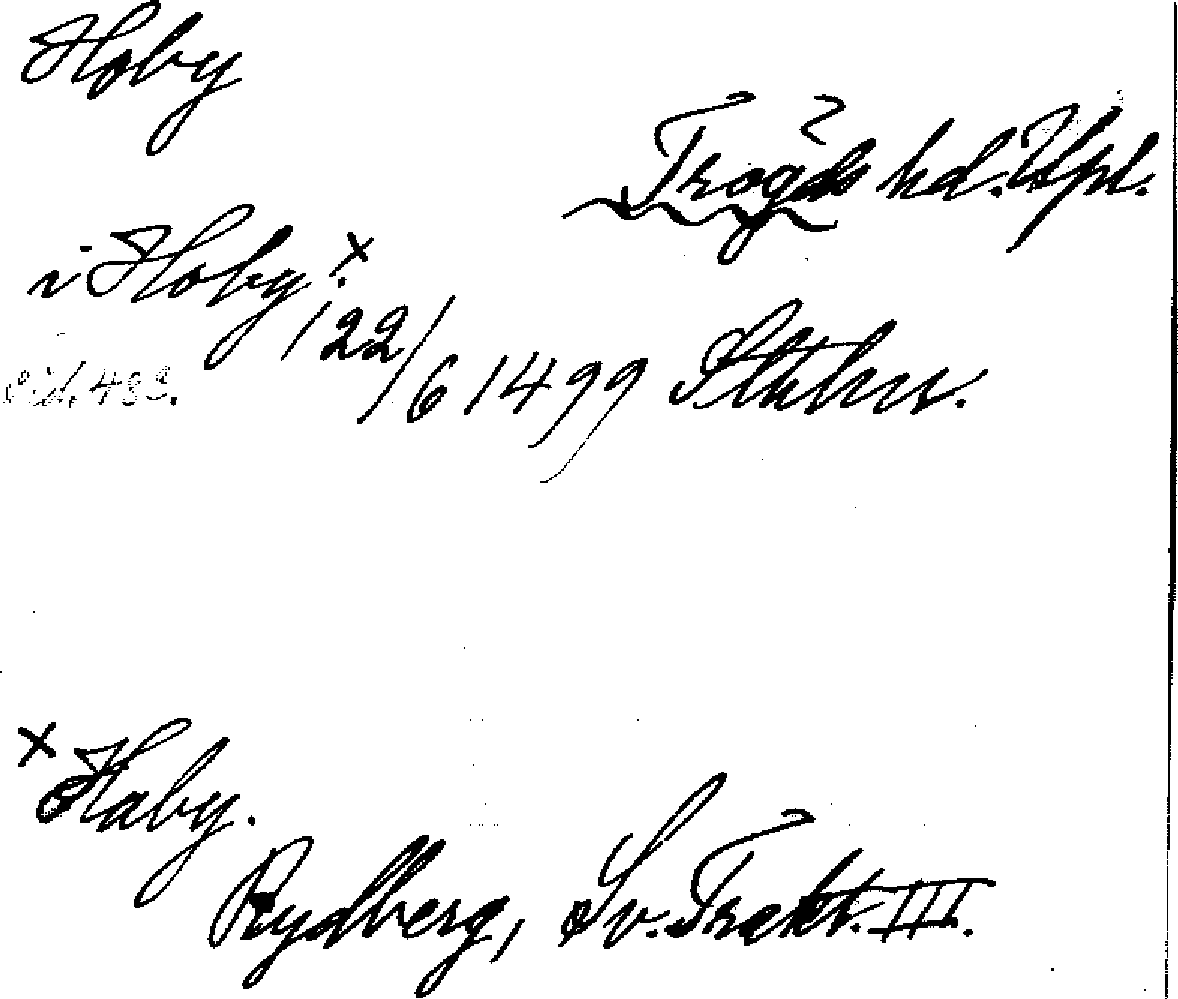 Hoby
? Trögds hd. Upl.
i Hoby. x
22/6 1499 Sthlm.
x Haby.
Rydberg, Sv. Trakt. III.